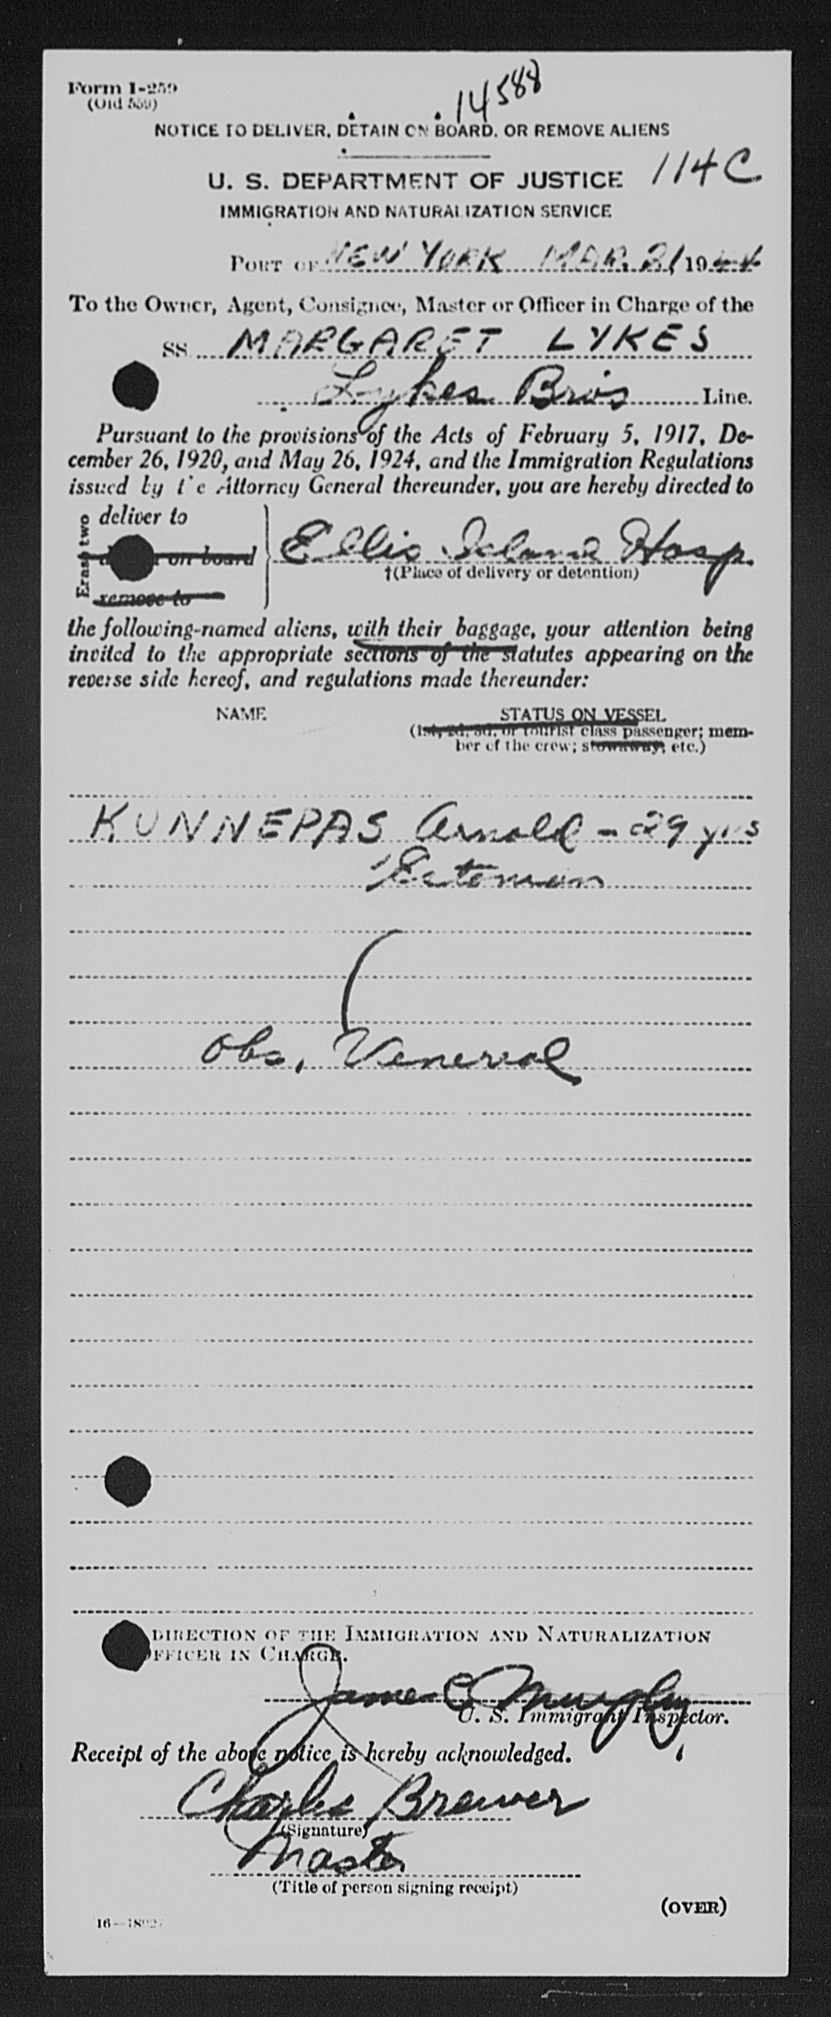 Form I-259
(Old 559)
14588
NOTICE TO DELIVER, DETAIN ON BOARD, OR REMOVE ALIENS
U. S. DEPARTMENT OF JUSTICE 114C
IMMIGRATION AND NATURALIZATION SERVICE
PORT OF NEW YORK MAR. 21 1944
To the Owner, Agent, Consignee, Master or Officer in Charge of the
SS. MARGARET LYKES
Lykes Bros Line.
Pursuant to the provisions of the Acts of February 5, 1917, De-
cember 26, 1920, and May 26, 1924, and the Immigration Regulations
issued by the Attorney General thereunder, you are hereby directed to
Erase two
deliver to
on board
remove to
Ellis Island Hosp.
†(Place of delivery or detention)
the following-named aliens, with their baggage, your attention being
invited to the appropriate sections of the statutes appearing on the
reverse side hereof, and regulations made thereunder:
NAME STATUS ON VESSEL
(1st, 2d, 3d, or tourist class passenger; mem-
ber of the crew; stowaway; etc.)
KUNNEPAS Arnold - 29 yrs
Estonian
Obs. Venereal
DIRECTION OF THE IMMIGRATION AND NATURALIZATION
OFFICER IN CHARGE.
James C Murphy
U. S. Immigrant Inspector.
Receipt of the above notice is hereby acknowledged.
Charles Brewer
(Signature)
Master
(Title of person signing receipt)
(OVER)